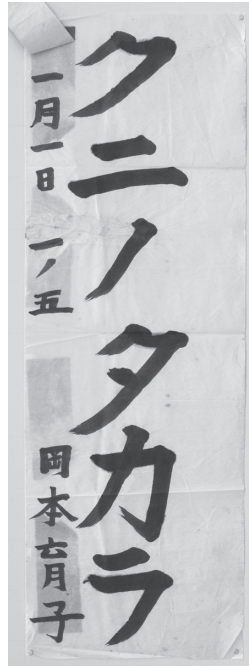 クニノタカラ
一月一日 一ノ五 岡本育子